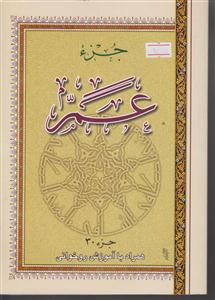 جزء
عمّ
جزء ۳۰
همراه با آموزش روخوانی